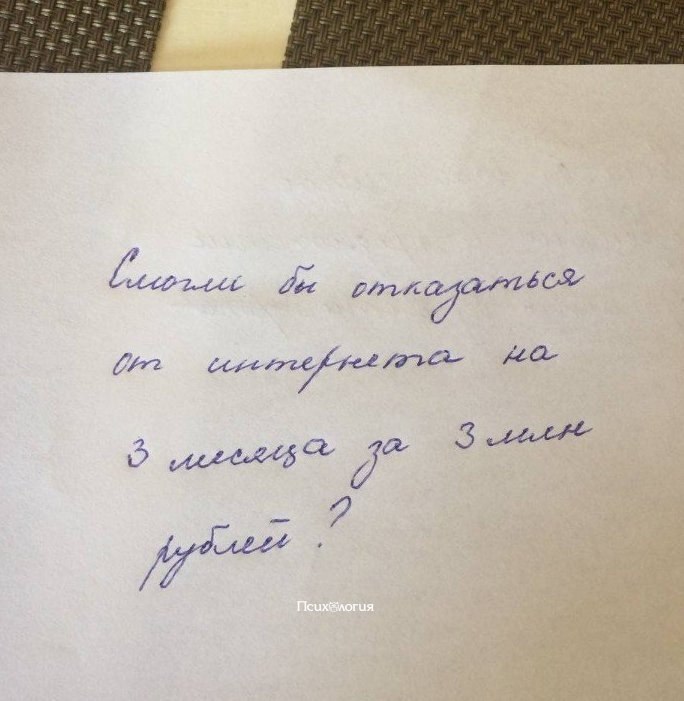 Смогли бы отказаться
от интернета на
3 месяца за 3 млн
рублей?
Психология